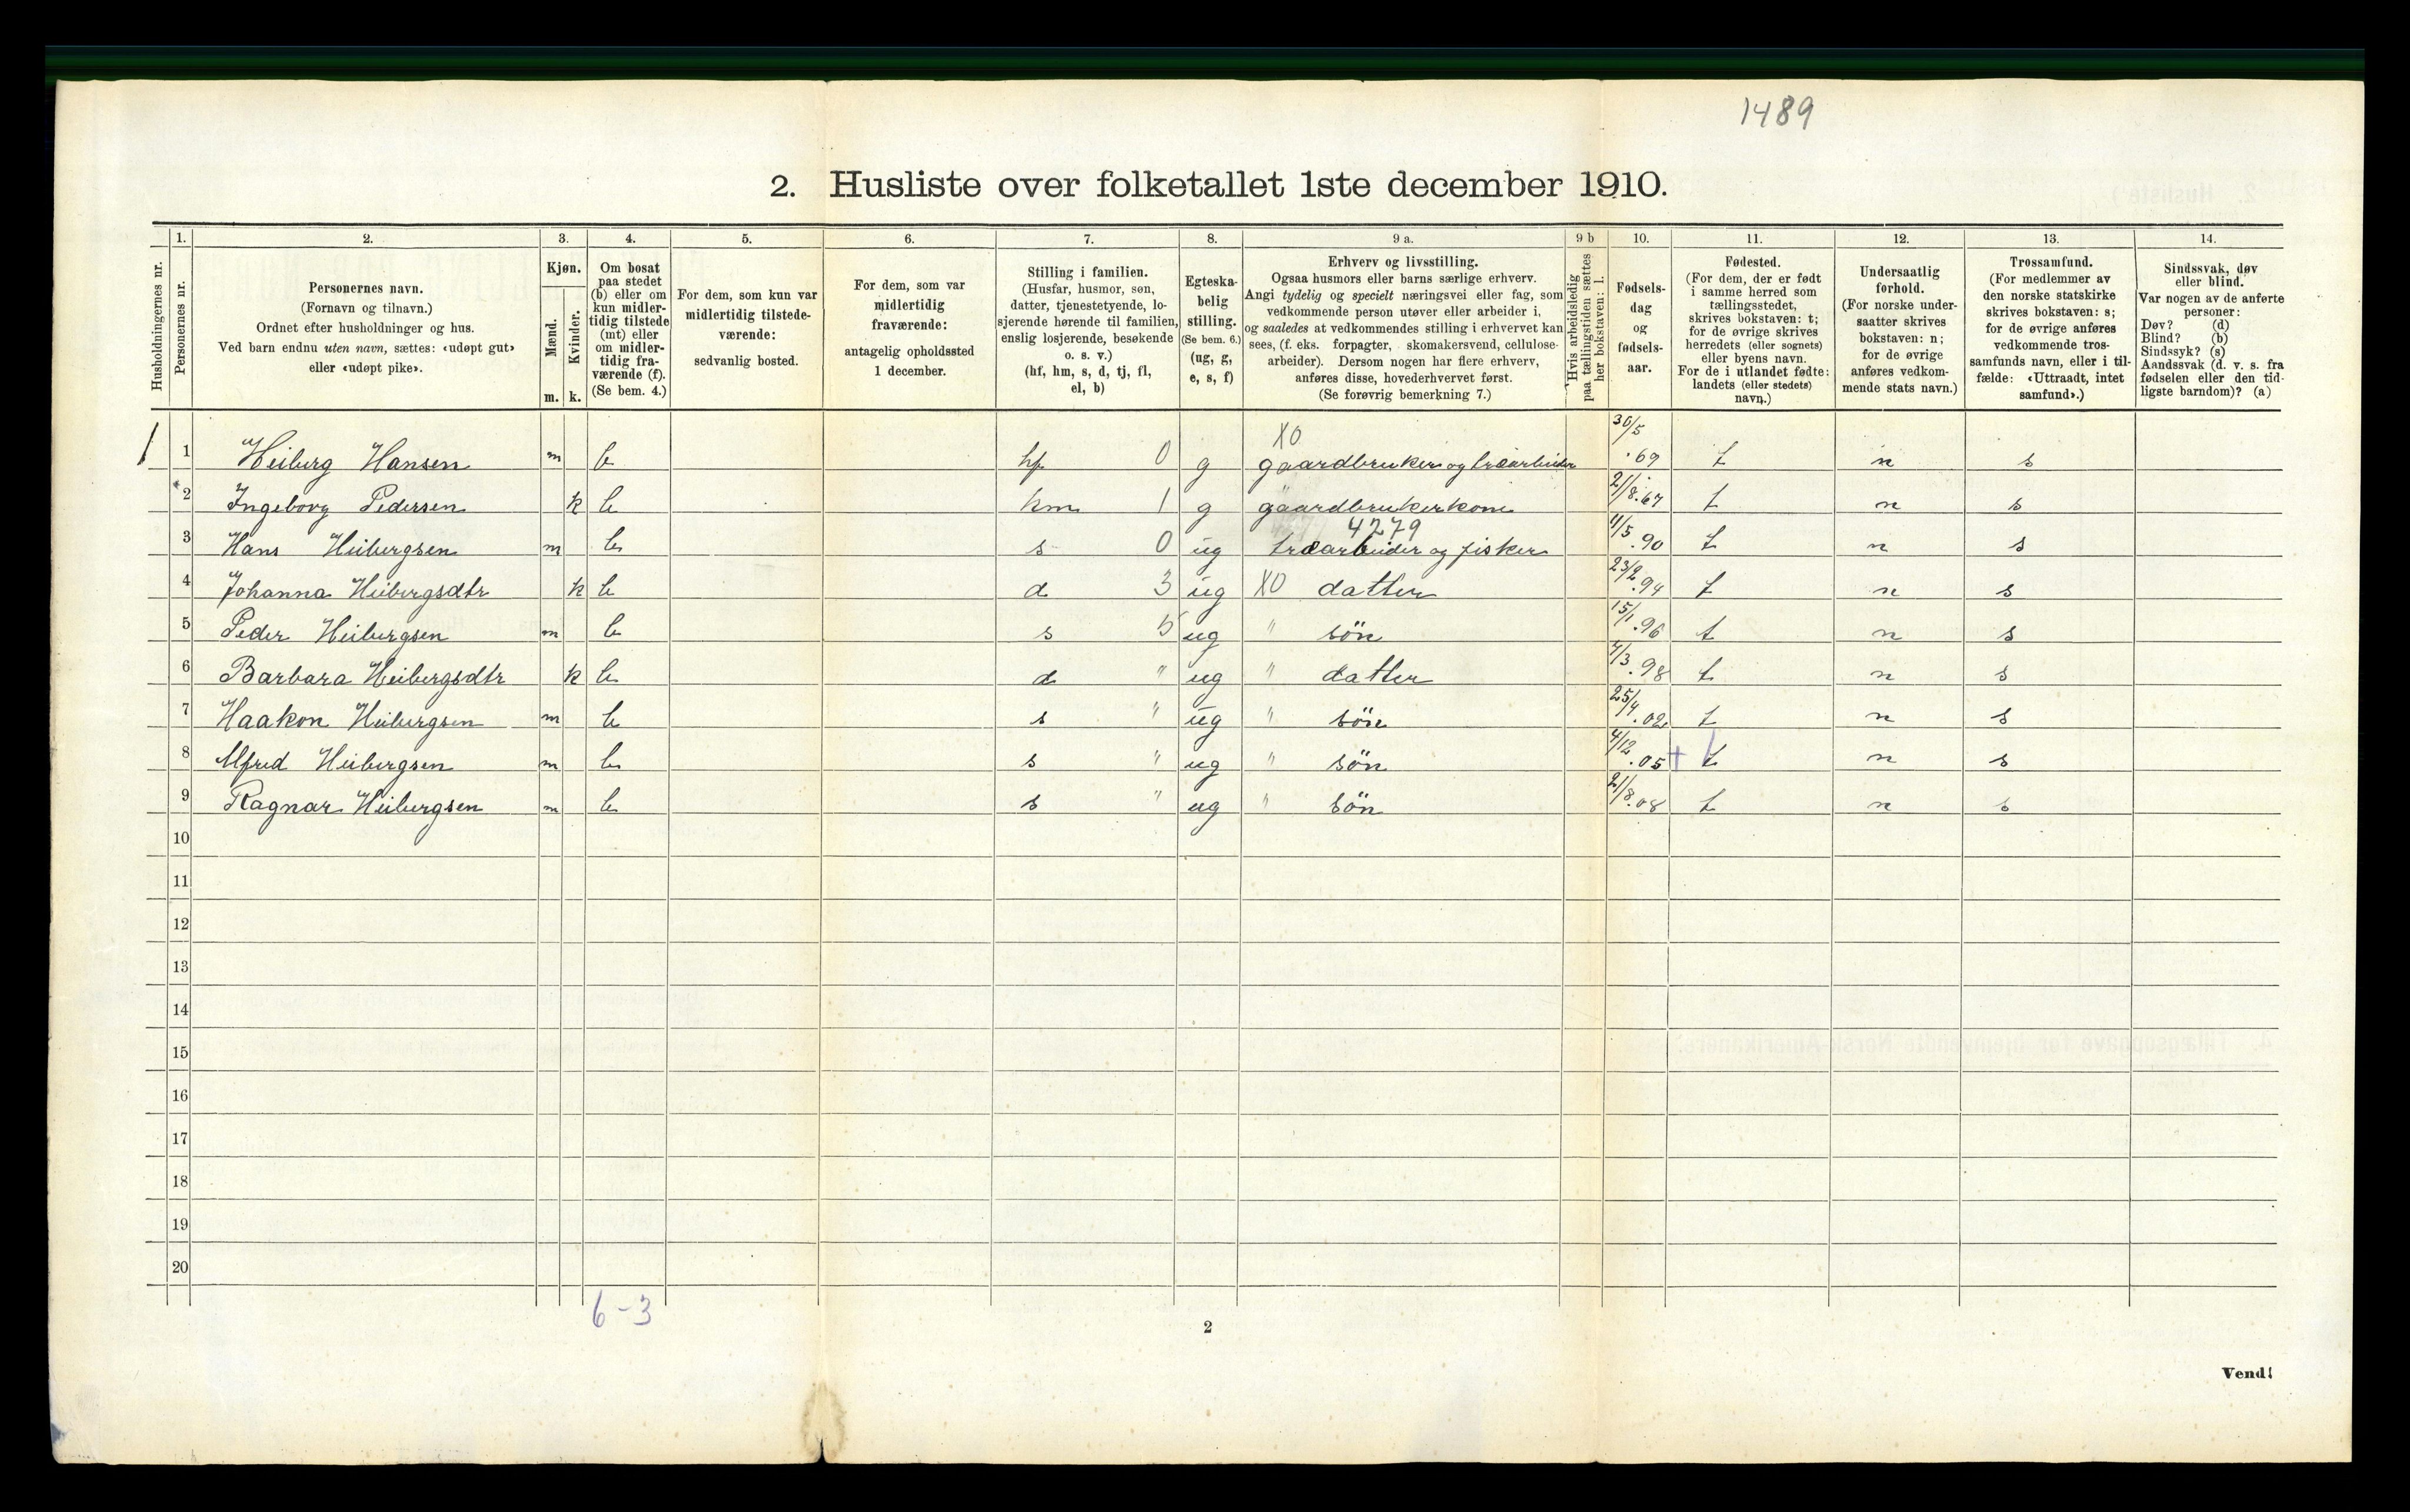 1489
2. Husliste over folketallet 1ste december 1910.
1. 2. 3. 4. 5. 6. 7. 8. 9 a. 9 b 10. 11. 12. 13. 14.
Husholdningernes nr.
Personernes nr.
Personernes navn.
(Fornavn og tilnavn.)
Ordnet efter husholdninger og hus.
Ved barn endnu uten navn, sættes: «udøpt gut»
eller «udøpt pike».
Kjøn.
Mænd.
Kvinder.
m. k.
Om bosat
paa stedet
(b) eller om
kun midler-
tidig tilstede
(mt) eller
om midler-
tidig fra-
værende (f).
(Se bem. 4.)
For dem, som kun var
midlertidig tilstede-
værende:
sedvanlig bosted.
For dem, som var
midlertidig
fraværende:
antagelig opholdssted
1 december.
Stilling i familien.
(Husfar, husmor, søn,
datter, tjenestetyende, lo-
sjerende hørende til familien,
enslig losjerende, besøkende
o. s. v.)
(hf, hm, s, d, tj, fl,
el, b)
Egteska-
belig
stilling.
(Se bem. 6.)
(ug, g,
e, s, f)
Erhverv og livsstilling.
Ogsaa husmors eller barns særlige erhverv.
Angi tydelig og specielt næringsvei eller fag, som
vedkommende person utøver eller arbeider i,
og saaledes at vedkommendes stilling i erhvervet kan
sees, (f. eks. forpagter, skomakersvend, cellulose-
arbeider). Dersom nogen har flere erhverv,
anføres disse, hovederhvervet først.
(Se forøvrig bemerkning 7.)
Hvis arbeidsledig
paa tællingstiden sættes
her bokstaven: l.
Fødsels-
dag
og
fødsels-
aar.
Fødested.
(For dem, der er født
i samme herred som
tællingsstedet,
skrives bokstaven: t;
for de øvrige skrives
herredets (eller sognets)
eller byens navn.
For de i utlandet fødte:
landets (eller stedets)
navn.)
Undersaatlig
forhold.
(For norske under-
saatter skrives
bokstaven: n;
for de øvrige
anføres vedkom-
mende stats navn.)
Trossamfund.
(For medlemmer av
den norske statskirke
skrives bokstaven: s;
for de øvrige anføres
vedkommende tros-
samfunds navn, eller i til-
fælde: «Uttraadt, intet
samfund».)
Sindssvak, døv
eller blind.
Var nogen av de anførte
personer:
Døv? (d)
Blind? (b)
Sindssyk? (s)
Aandssvak (d. v. s. fra
fødselen eller den tid-
ligste barndom)? (a)
X0
1 1 Heiberg Hansen m b hf 0 g gaardbruker og træarbeider 30/5 .69 t n s
2 Ingeborg Pedersen k b hm 1 g gaardbrukerkone 21/8.67 t n s
4279
3 Hans Heibergsen m b s 0 ug træarbeider og fisker 11/5 .90 t n s
4 Johanna Heibergsdtr k b d 3 ug X0 datter 23/2 .94 t n s
5 Peder Heibergsen m b s 5 ug " sön 15/1 .96 t n s
6 Barbara Heibergsdtr k b d " ug " datter 4/3 .98 t n s
7 Haakon Heibergsen m b s " ug " sön 25/4 .02 t n s
8 Alfred Heibergsen m b s " ug " sön 4/12 .05 + t n s
9 Ragnar Heibergsen m b s " ug " sön 21/8.08 t n s
10
11
12
13
14
15
16
17
18
19
20
6-3
2
Vend!